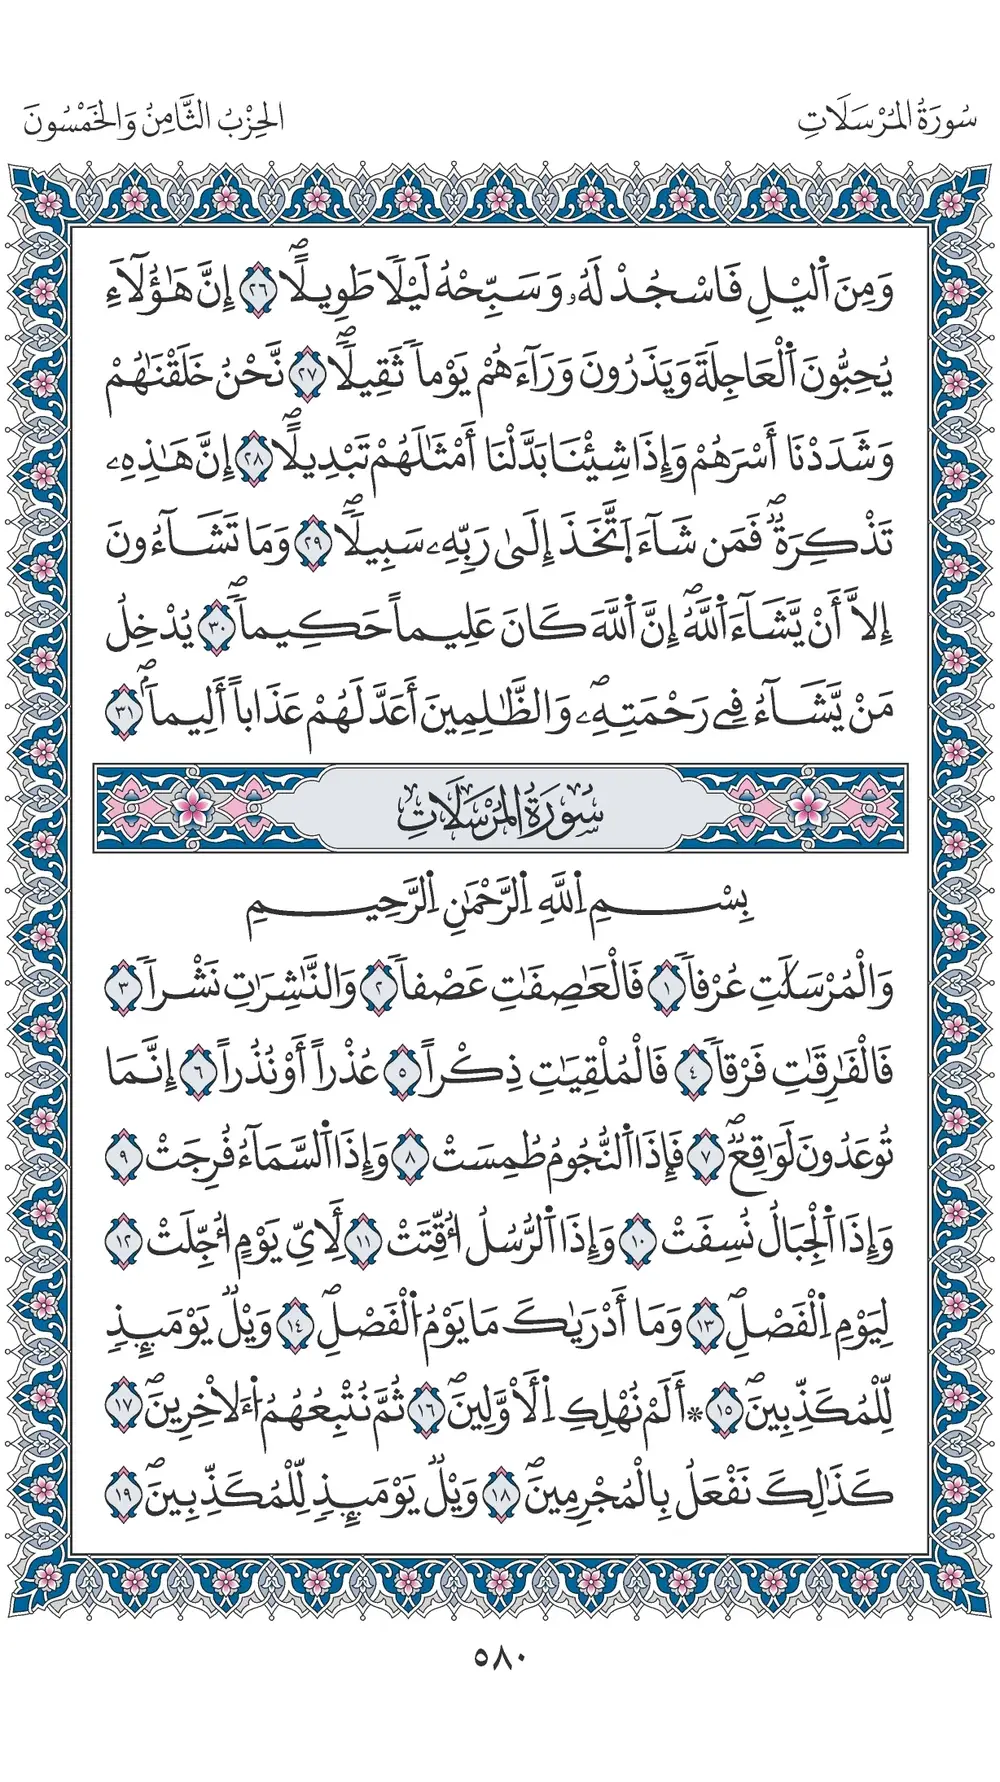 سُورَةُ المُرْسَلَاتِ
الحِزْبُ الثَّامِنُ وَالخَمْسُونَ
وَمِنَ اَ۬ليْلِ فَاسْجُدْ لَهُۥ وَسَبِّحْهُ لَيْلاٗ طَوِيلاًۖ ٢٦ إِنَّ هَٰٓؤُلَآءِ
يُحِبُّونَ اَ۬لْعَاجِلَةَ وَيَذَرُونَ وَرَآءَهُمْ يَوْماٗ ثَقِيلاٗۖ ٢٧ نَّحْنُ خَلَقْنَٰهُمْ
وَشَدَدْنَا أَسْرَهُمْ وَإِذَا شِئْنَا بَدَّلْنَا أَمْثَٰلَهُمْ تَبْدِيلاًۖ ٢٨ إِنَّ هَٰذِهِۦ
تَذْكِرَةٞۖ فَمَن شَآءَ اَ۪تَّخَذَ إِلَىٰ رَبِّهِۦ سَبِيلاٗۖ ٢٩ وَمَا تَشَآءُونَ
إِلَّا أَنْ يَّشَآءَ اَ۬للَّهُۖ إِنَّ اَ۬للَّهَ كَانَ عَلِيماً حَكِيماٗۖ ٣٠ يُدْخِلُ
مَنْ يَّشَآءُ فِے رَحْمَتِهِۦۖ وَالظَّٰلِمِينَ أَعَدَّ لَهُمْ عَذَاباً أَلِيماٗۖ ٣١
سُورَةُ المُرْسَلَاتِ
بِسْمِ اِ۬للَّهِ اِ۬لرَّحْمَٰنِ اِ۬لرَّحِيمِ
وَالْمُرْسَلَٰتِ عُرْفاٗ ١ فَالْعَٰصِفَٰتِ عَصْفاٗ ٢ وَالنَّٰشِرَٰتِ نَشْراٗ ٣
فَالْفَٰرِقَٰتِ فَرْقاٗ ٤ فَالْمُلْقِيَٰتِ ذِكْراً ٥ عُذْراً أَوْ نُذُراً ٦ إِنَّمَا
تُوعَدُونَ لَوَٰقِعٞۖ ٧ فَإِذَا اَ۬لنُّجُومُ طُمِسَتْ ٨ وَإِذَا اَ۬لسَّمَآءُ فُرِجَتْ ٩
وَإِذَا اَ۬لْجِبَالُ نُسِفَتْ ١٠ وَإِذَا اَ۬لرُّسُلُ أُقِّتَتْ ١١ لِأَيِّ يَوْمٍ أُجِّلَتْ ١٢
لِيَوْمِ اِ۬لْفَصْلِۖ ١٣ وَمَا أَدْرَىٰكَ مَا يَوْمُ اُ۬لْفَصْلِۖ ١٤ وَيْلٞ يَوْمَئِذٖ
لِّلْمُكَذِّبِينَۖ ١٥ * أَلَمْ نُهْلِكِ اِ۬لَاوَّلِينَۖ ١٦ ثُمَّ نُتْبِعُهُمُ اُ۬لَاخِرِينَۖ ١٧
كَذَٰلِكَ نَفْعَلُ بِالْمُجْرِمِينَۖ ١٨ وَيْلٞ يَوْمَئِذٖ لِّلْمُكَذِّبِينَۖ ١٩
٥٨٠